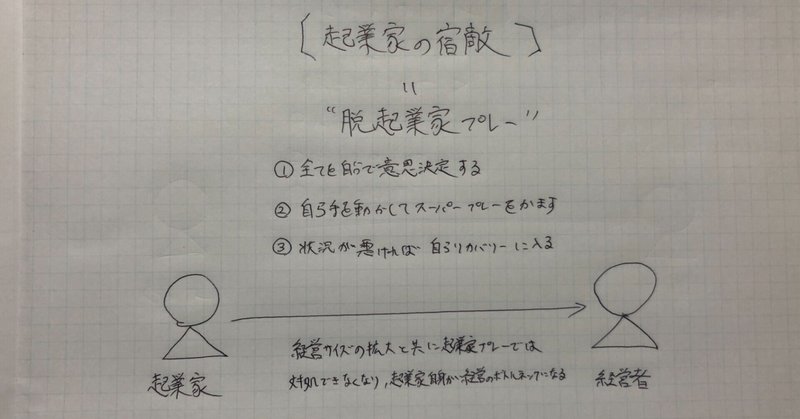 [起業家の宿敵]
=
"脱起業家プレー"
① 全てを自分で意思決定する
② 自ら手を動かしてスーパープレーをかます
③ 状況が悪ければ自らリカバリーに入る
経営サイズの拡大と共に起業家プレーでは
対処できなくなり、起業家自身が経営のボトルネックになる
起業家
経営者